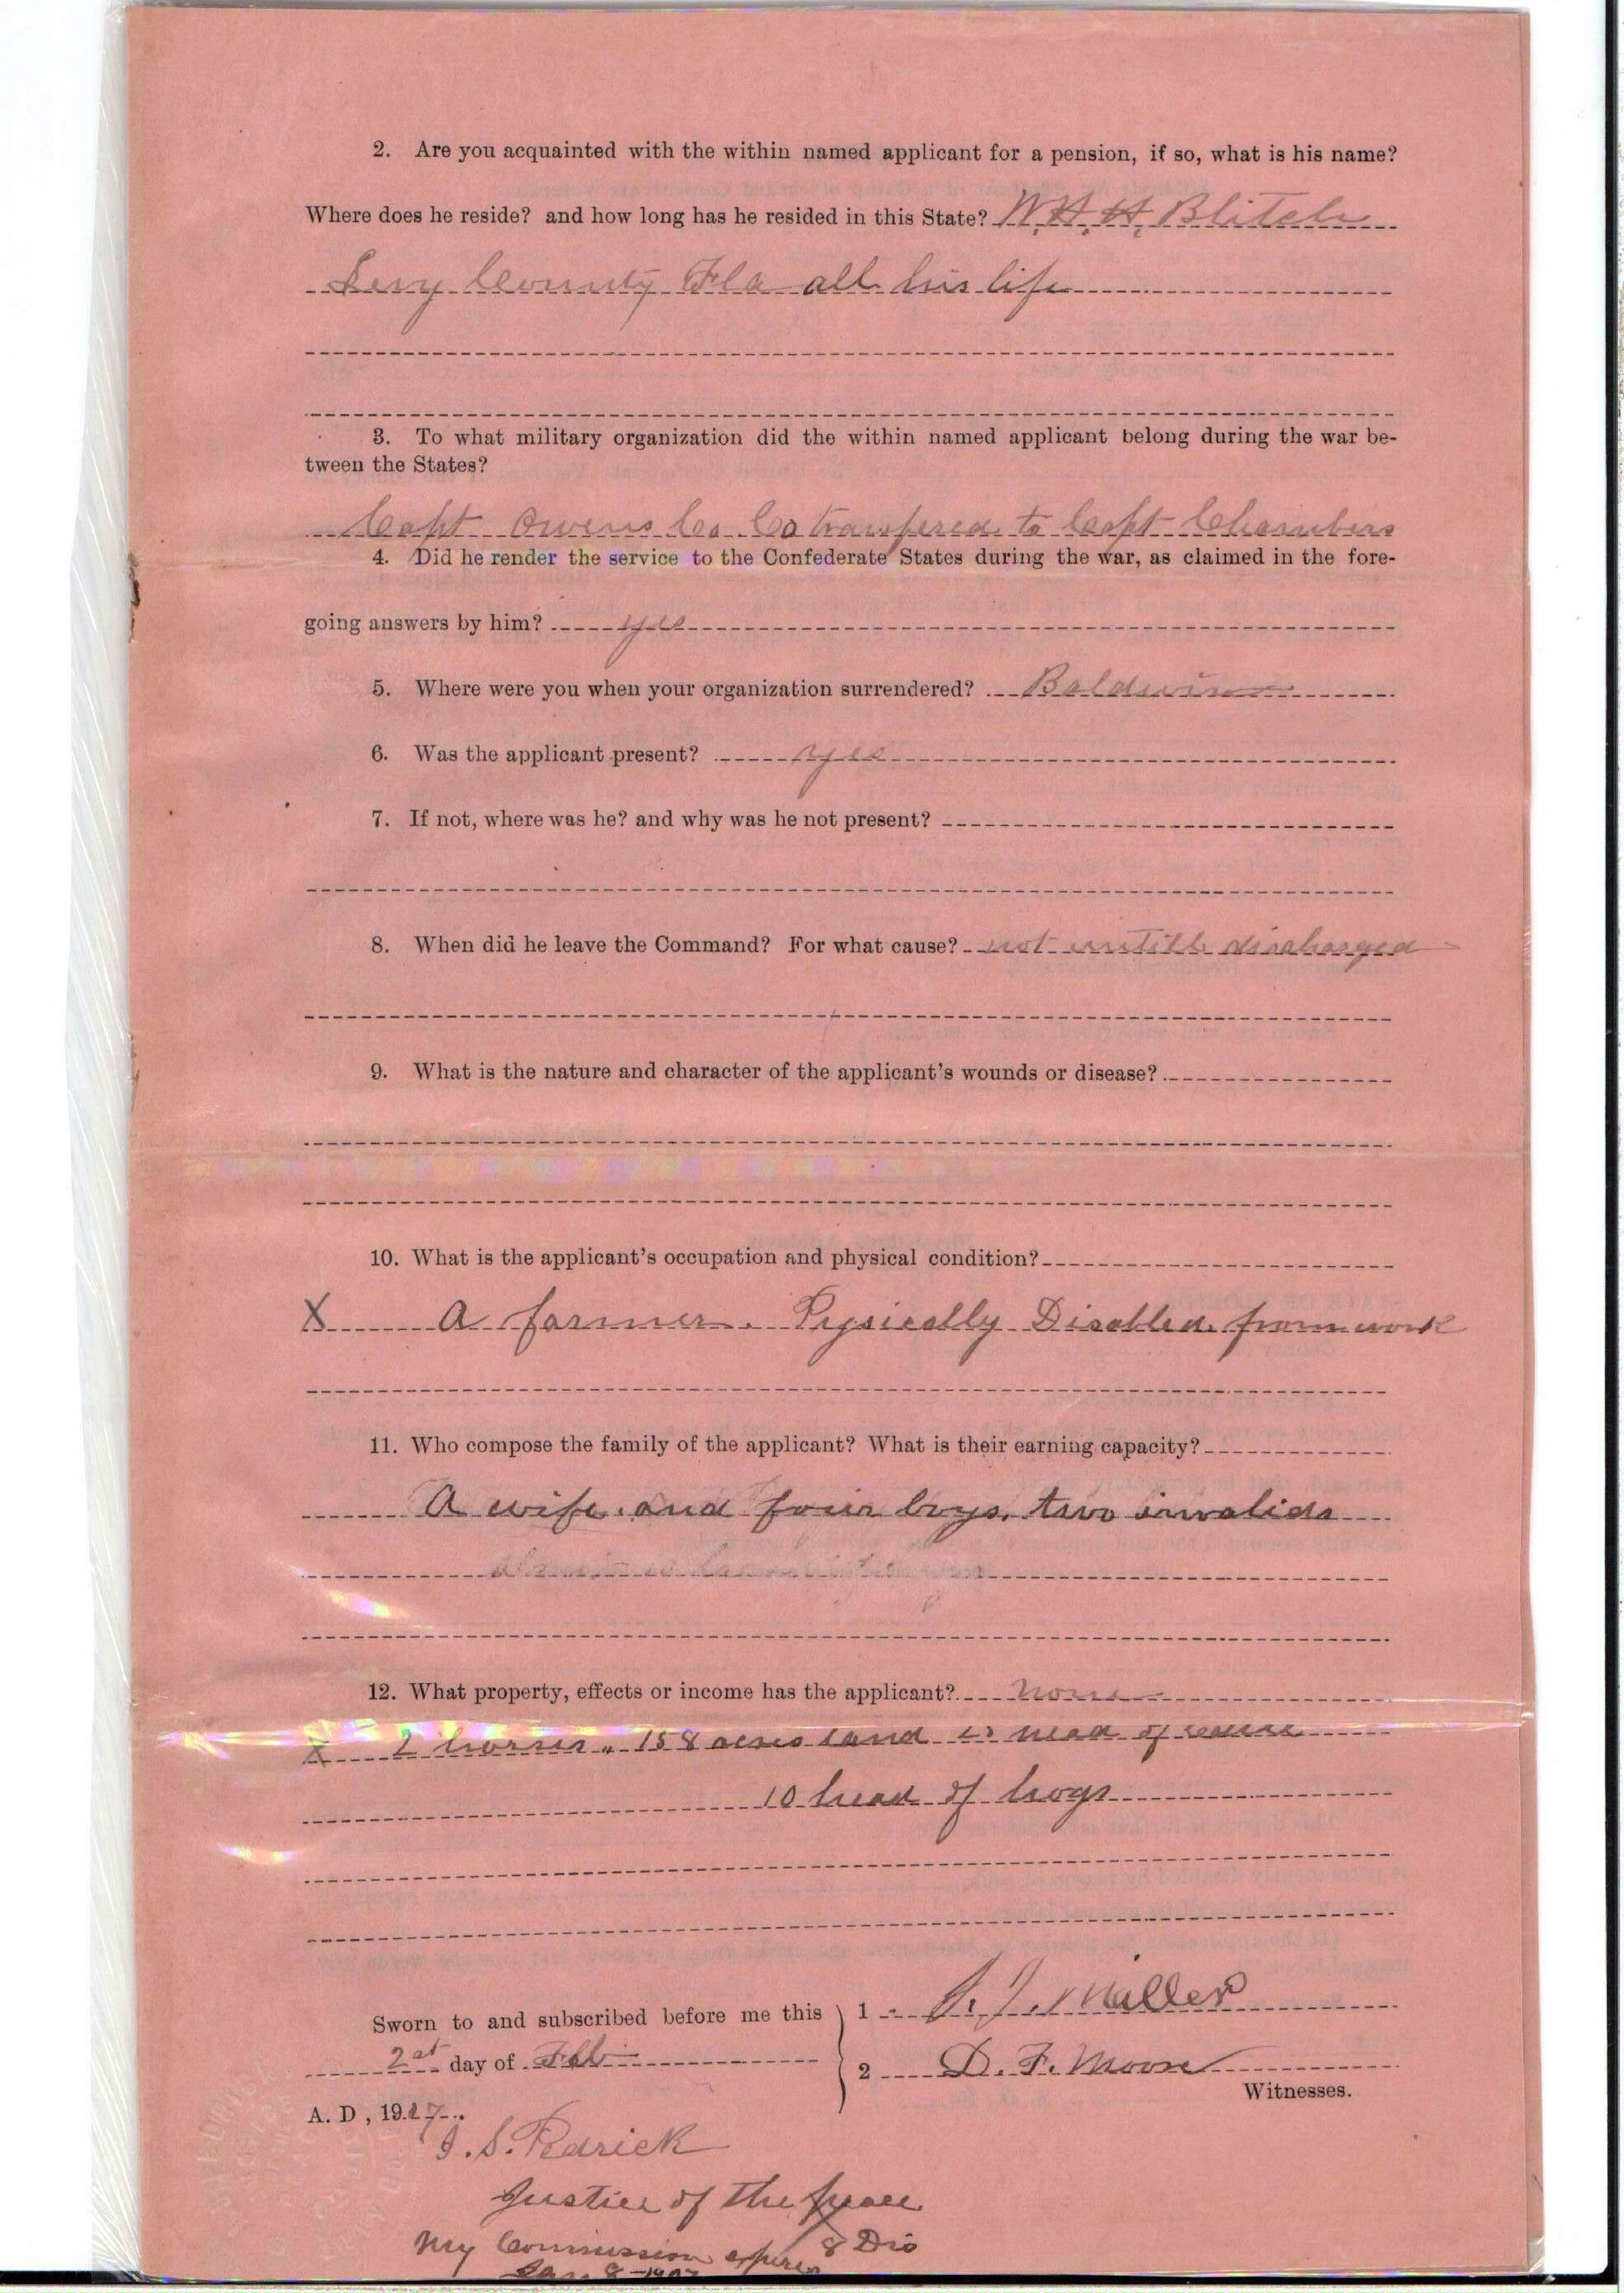 2. Are you acquainted with the within named applicant for a pension, if so, what is his name?
Where does he reside? and how long has he resided in this State? W. H. H. Blitch
Levy County Fla all his life
3. To what military organization did the within named applicant belong during the war be-
tween the States?
Capt Owens Co. Co transfered to Capt Chambers
4. Did he render the service to the Confederate States during the war, as claimed in the fore-
going answers by him? yes
5. Where were you when your organization surrendered? Baldwin
6. Was the applicant present? yes
7. If not, where was he? and why was he not present?
8. When did he leave the Command? For what cause? not untill discharged
9. What is the nature and character of the applicant's wounds or disease?
10. What is the applicant's occupation and physical condition?
X A farmer. Pysically Disabled from work
11. Who compose the family of the applicant? What is their earning capacity?
A wife and four boys, two invalids
12. What property, effects or income has the applicant? none
X 2 horses, 158 acres land head of
10 head of hogs
Sworn to and subscribed before me this 1 J. J. Miller
2st day of Feb
2 D. F. Moore
Witnesses.
A. D, 19
J. S. Pedrick
Justice of the peace
My Commission expires 8 Dis
Jan 8